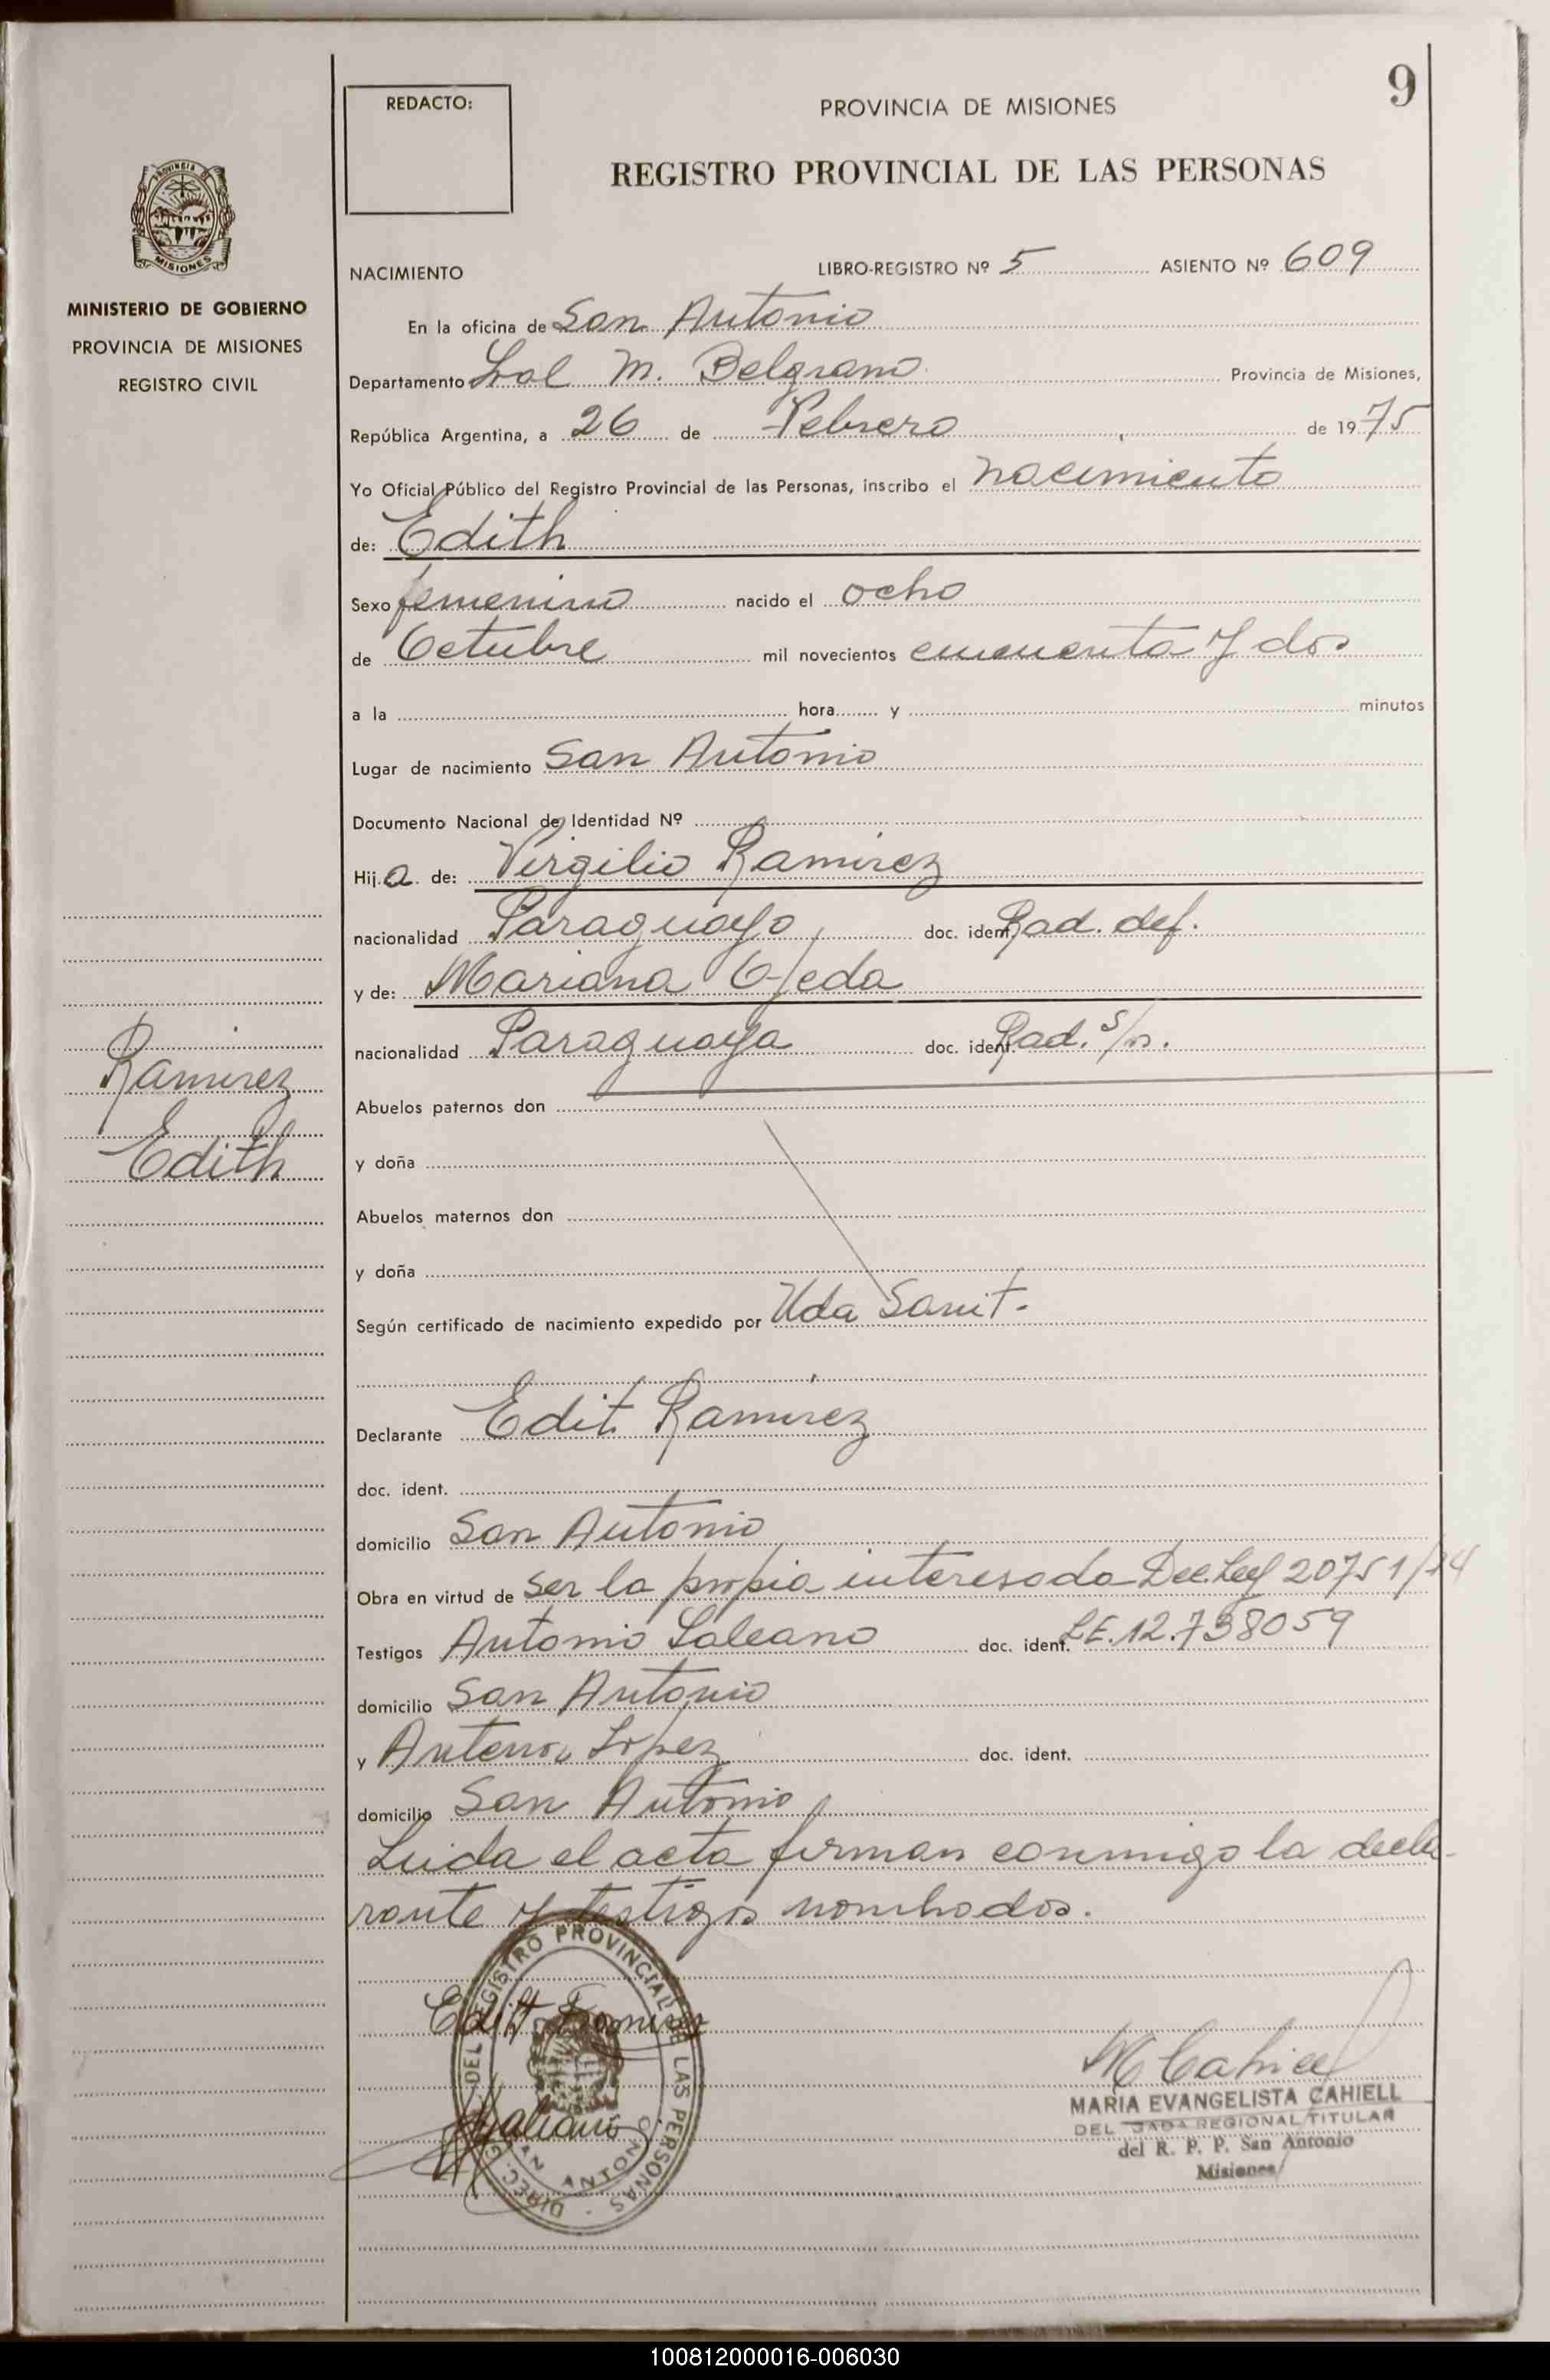 9
REDACTO:
PROVINCIA DE MISIONES
REGISTRO PROVINCIAL DE LAS PERSONAS
PROVINCIA DE
MISIONES
MINISTERIO DE GOBIERNO
PROVINCIA DE MISIONES
REGISTRO CIVIL
NACIMIENTO LIBRO-REGISTRO Nº 5 ASIENTO Nº 609
En la oficina de San Antonio
Departamento Gral M. Belgrano Provincia de Misiones,
República Argentina, a 26 de Febrero de 1975
Yo Oficial Público del Registro Provincial de las Personas, inscribo el nacimiento
de: Edith
Sexo femenino nacido el ocho
de Octubre mil novecientos cincuenta y dos
a la hora y minutos
Lugar de nacimiento San Antonio
Documento Nacional de Identidad Nº
Hija de: Virgilio Ramirez
nacionalidad Paraguayo doc. ident. Rad. def.
y de: Mariana Ojeda
nacionalidad Paraguaya doc. ident. Rad. s/n.
Ramirez
Edith
Abuelos paternos don
y doña
Abuelos maternos don
y doña
Según certificado de nacimiento expedido por Uda Sanit.
Declarante Edit Ramirez
doc. ident.
domicilio San Antonio
Obra en virtud de ser la propia interesada Dec. Ley 20751/74
Testigos Antonio Galeano doc. ident. LE. 12.738059
domicilio San Antonio
y Antenor Lopez doc. ident.
domicilio San Antonio
Leida el acta firman conmigo la decla-
rante y testigos nombrados.
DIREC. GRAL. DEL REGISTRO PROVINCIAL DE LAS PERSONAS
SAN ANTONIO
Edit Ramirez
Galeano
M Cahiell
MARIA EVANGELISTA CAHIELL
DELEGADA REGIONAL TITULAR
del R. P. P. San Antonio
Misiones
100812000016-006030